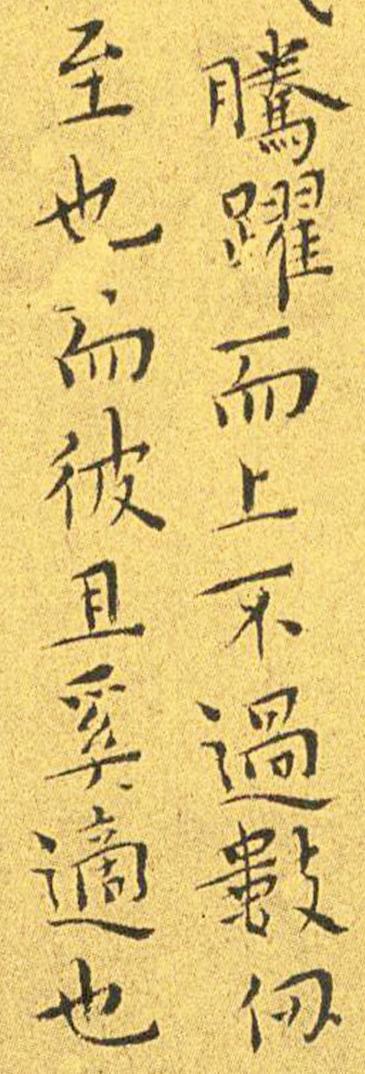 騰躍而上不過數仞
至也而彼且奚適也